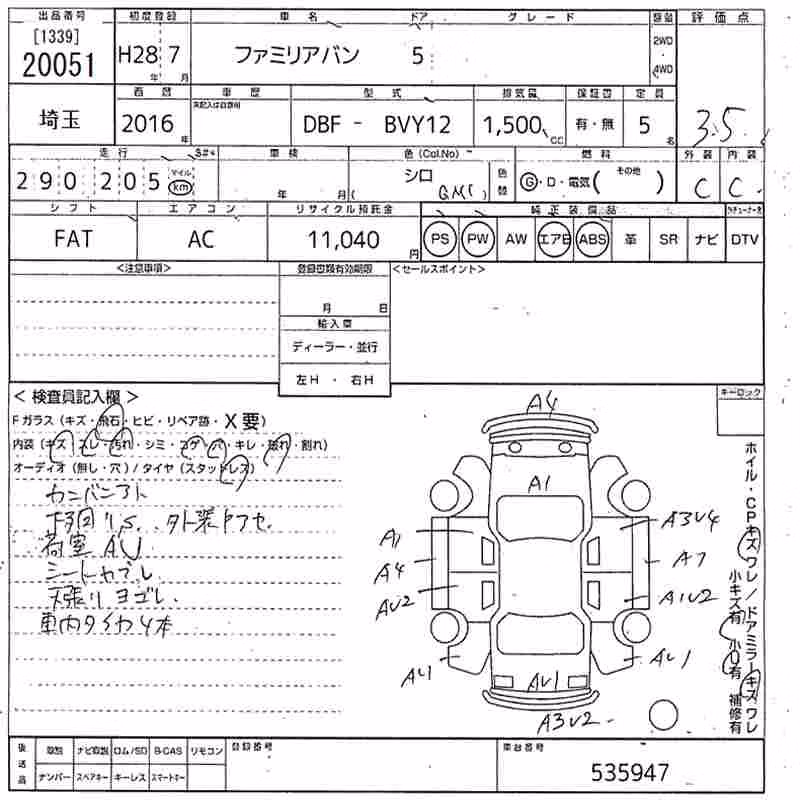 出品番号 初度登録 車名 ドア グレード 駆動 評価点
[1339]
20051 H28 年 7 月 ファミリアバン 5 2WD ・ 4WD 3.5
西暦 車歴 型式 排気量 保証書 定員
未記入は自家用
埼玉 2016 年 DBF - BVY12 1,500 CC 有・無 5 名
走行 S#* 車検 色 (Col.No) 燃料 外装 内装
290205 マイル km 年 月( シロ QM1) 色替 G・D・電気( その他 ) C C
シフト エアコン リサイクル預託金 純正装備品
FAT AC 11,040 円 PS PW AW エアB ABS 革 SR ナビ DTV
<注意事項> 登録書類有効期限 <セールスポイント>
月 日
輸入車
ディーラー・並行
左H ・ 右H
キーロック
< 検査員記入欄 >
Fガラス (キズ・飛石・ヒビ・リペア跡・X要)
内装 (キズ・スレ・汚れ・シミ・コゲ・穴・キレ・破れ・割れ)
オーディオ (無し・穴) / タイヤ (スタッドレス)
カンバンアト
荷室AU
シートヤブレ
天張リヨゴレ.
車内タイヤ4本
A4
A1
A1
A3U4
A4
A7
AU2
A1U2
AU1
AU1
AU1
A3U2
ホイル・CPキズ ワレ / ドアミラーキズ ワレ
小キズ有 小U有 補修有
後送品 取説 ナビ取説 ロム/SD B-CAS リモコン 登録番号 車台番号
ナンバー スペアキー キーレス スマートキー 535947